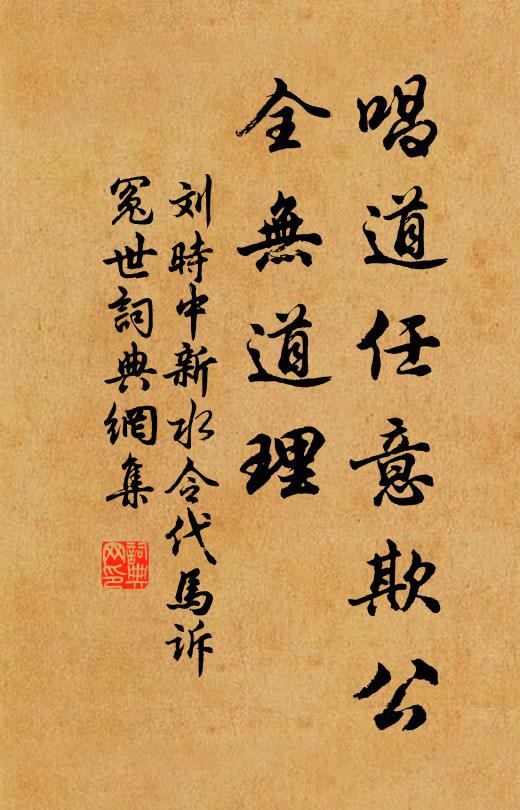 唱道任意欺公
全無道理
刘時中新水令代馬訴
冤世詞典網集
詞典网印